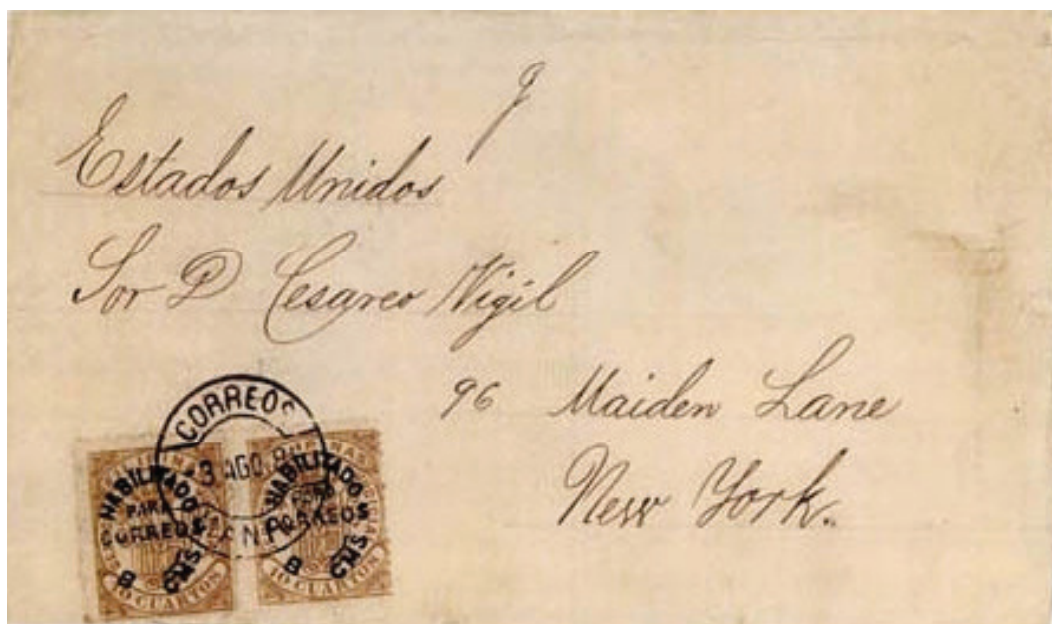 Estados Unidos
Sor D Cesareo Vigil
96 Maiden Lane
New York.
CORREOS
3 AGO 8
HABILITADO
PARA
CORREOS
8 CMS
10 CUARTOS
HABILITADO
PARA
CORREOS
8 CMS
10 CUARTOS